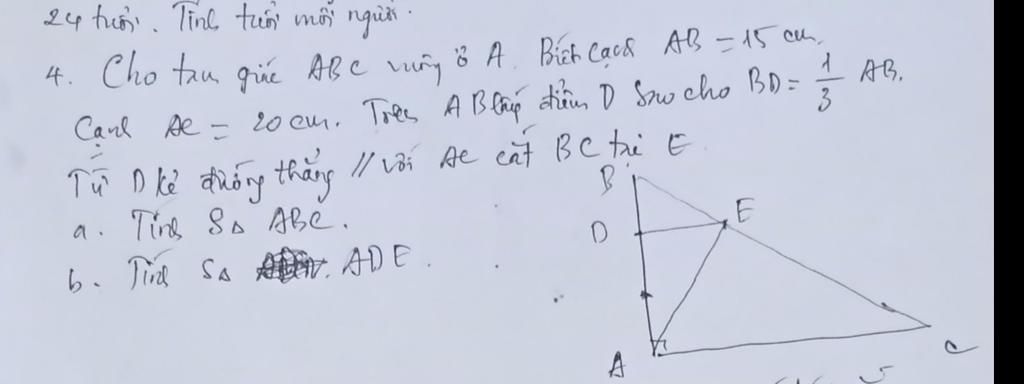 24 tuổi. Tính tuổi mỗi người.
4. Cho tam giác ABC vuông ở A. Biết cạnh AB = 15 cm,
Cạnh AC = 20 cm. Trên AB lấy điểm D sao cho BD = 1/3 AB.
Từ D kẻ đường thẳng // với AC cắt BC tại E
a. Tính S△ ABC.
b. Tính S△ ADE.
B
D
E
A
C